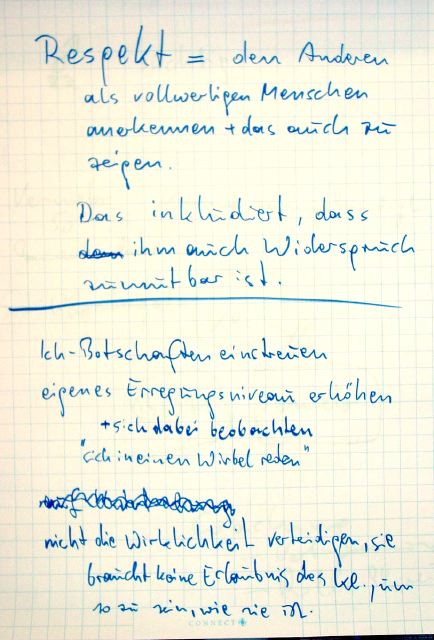 Respekt = den Anderen
als vollwertigen Menschen
anerkennen + das auch zu
zeigen.
Das inkludiert, dass
ihm auch Widerspruch
zumutbar ist.
Ich-Botschaften einstreuen
eigenes Erregungsniveau erhöhen
+ sich dabei beobachten
"sich in einen Wirbel reden"
nicht die Wirklichkeit verteidigen, sie
braucht keine Erlaubnis des Kl., um
so zu sein, wie sie ist.
CONNECT